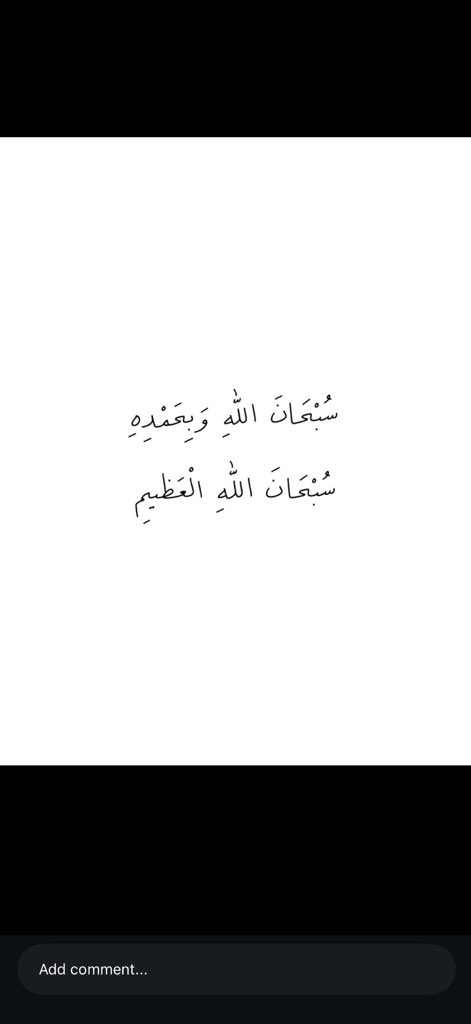 سُبْحَانَ اللّٰهِ وَبِحَمْدِهِ
سُبْحَانَ اللّٰهِ الْعَظِيمِ
Add comment...